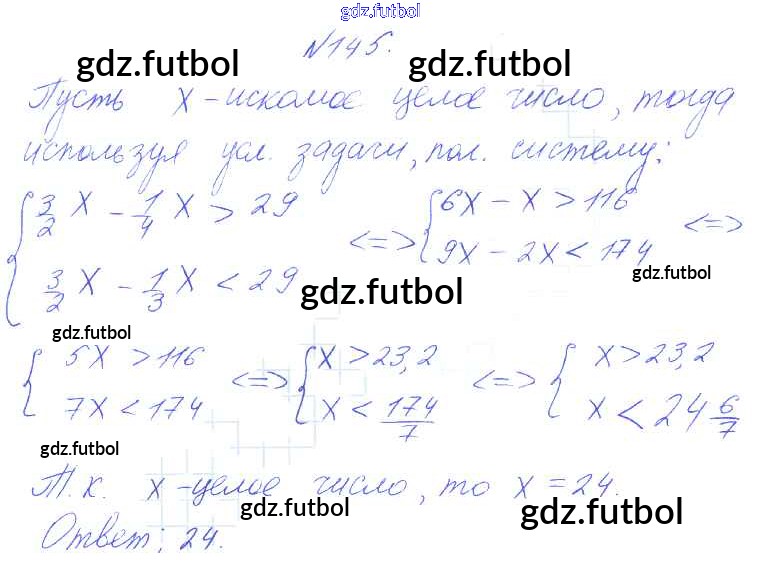 gdz.futbol
№145.
gdz.futbol gdz.futbol
Пусть x - искомое целое число, тогда
используя усл. задачи, пол. систему:
{ 3/2 x - 1/4 x > 29 <=> { 6x - x > 116 <=>
{ 3/2 x - 1/3 x < 29 { 9x - 2x < 174
gdz.futbol
gdz.futbol
gdz.futbol
{ 5x > 116 <=> { x > 23,2 <=> { x > 23,2
{ 7x < 174 { x < 174/7 { x < 24 6/7
gdz.futbol
Т.к. x - целое число, то x = 24.
gdz.futbol gdz.futbol
Ответ: 24.